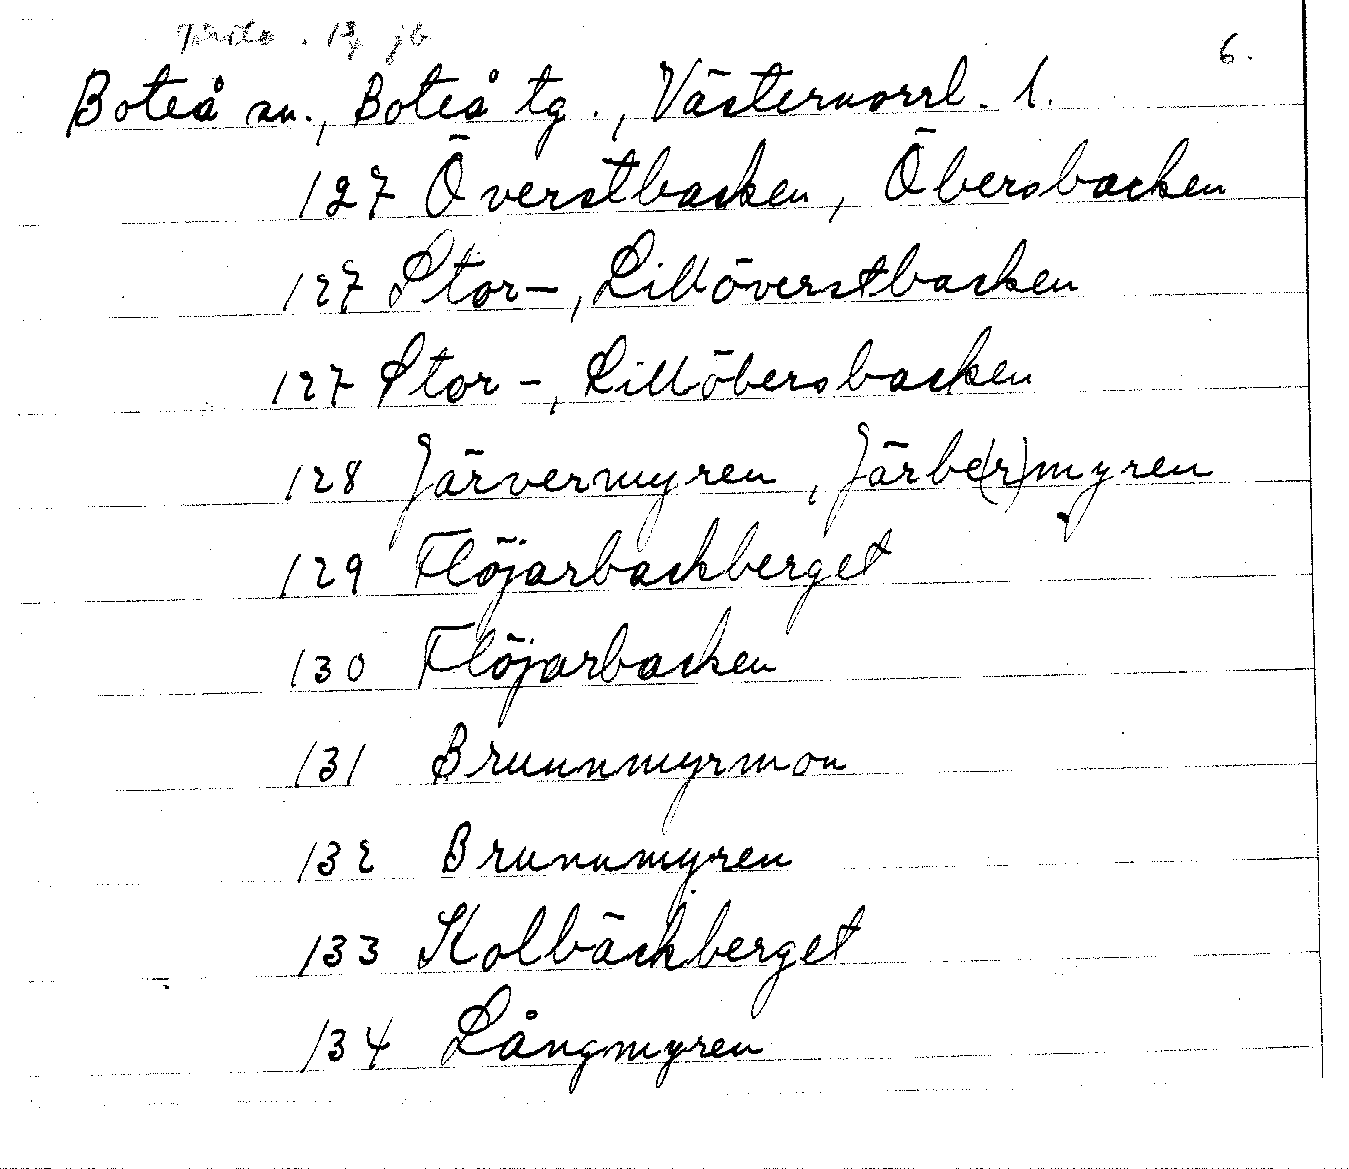 6.
Boteå sn., Boteå tg., Västernorrl. l.
127 Överstbacken, Öbersbacken
127 Stor-, Lillöverstbacken
127 Stor-, Lillöbersbacken
128 Järvermyren, Järbe(r)myren
129 Flöjarbackberget
130 Flöjarbacken
131 Brunnmyrmon
132 Brunnmyren
133 Kolbäckberget
134 Långmyren